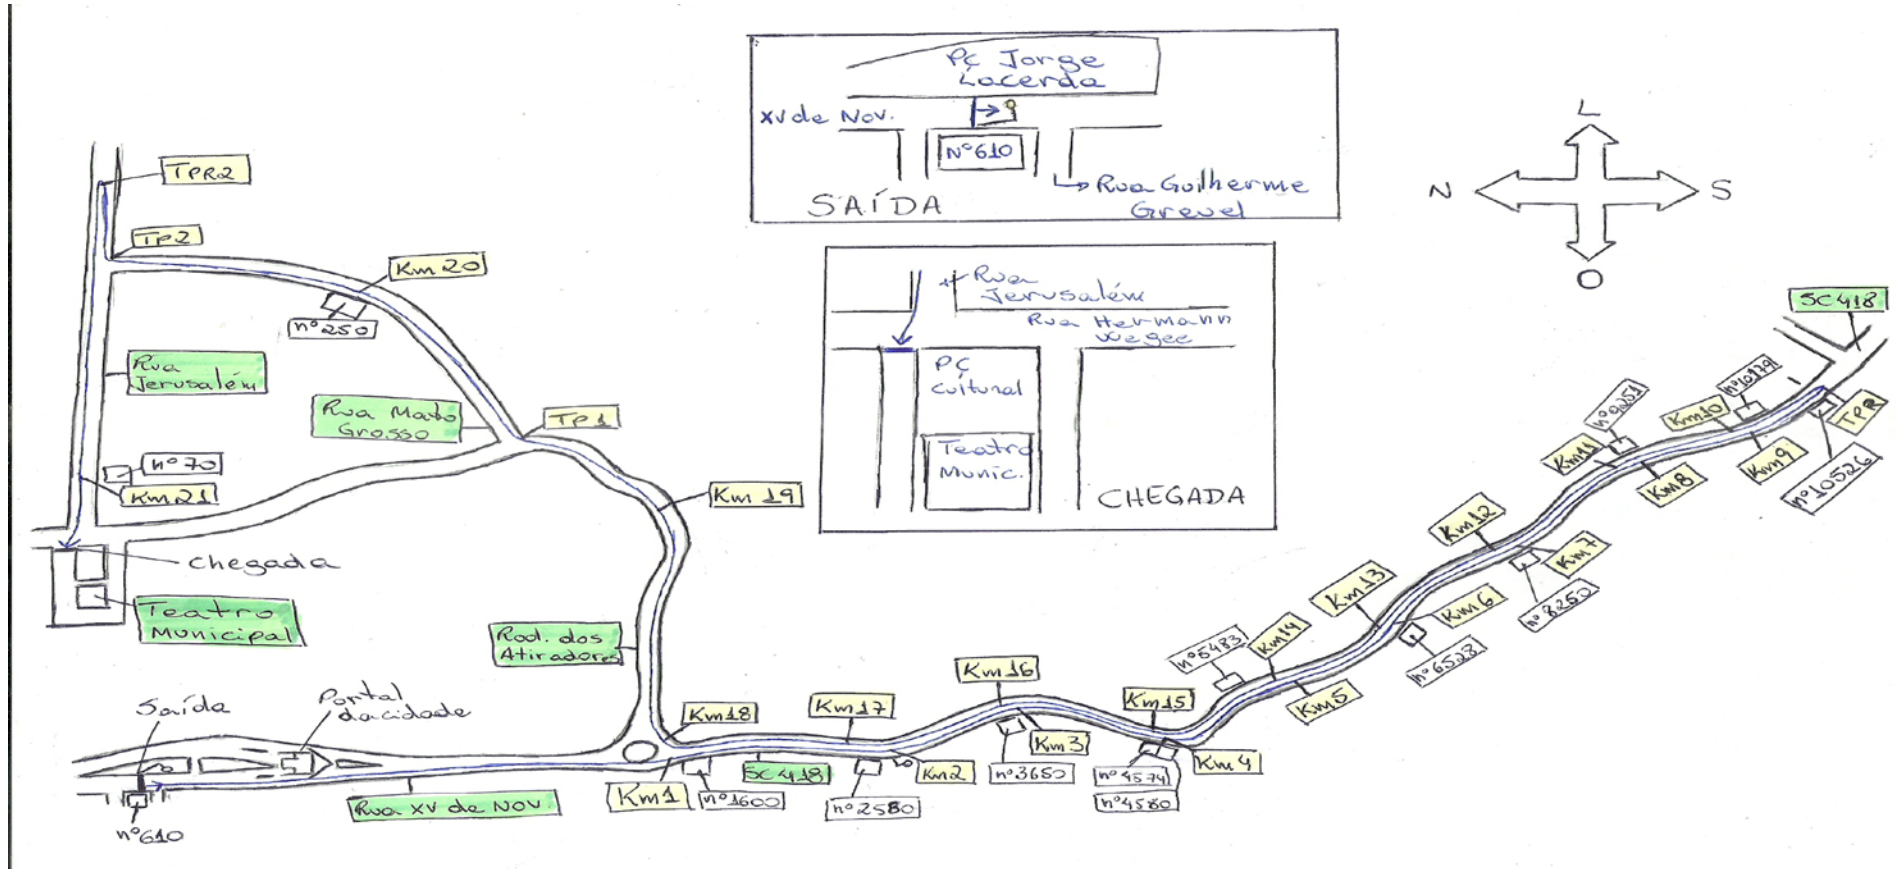 Pç Jorge
Lacerda
XV de Nov.
Nº610
SAÍDA
Rua Guilherme
Grevel
L
N
S
O
Rua
Jerusalém
Rua Hermann
Wegee
PÇ
Cultural
Teatro
Munic.
CHEGADA
TPR2
TP2
Km 20
nº250
Rua
Jerusalém
Rua Mato
Grosso
TP1
nº70
Km21
Km 19
chegada
Teatro
Municipal
Rod. dos
Atiradores
Saída
Portal
da cidade
nº610
Rua XV de Nov.
Km1
nº1600
Km18
SC 418
Km17
nº2580
Km2
Km16
nº3650
Km3
Km15
nº4574
nº4580
Km4
nº5483
Km14
Km5
Km13
Km6
nº6523
Km12
Km7
nº8250
Km11
nº9251
Km8
Km10
nº10179
Km9
nº10526
TPR
SC418